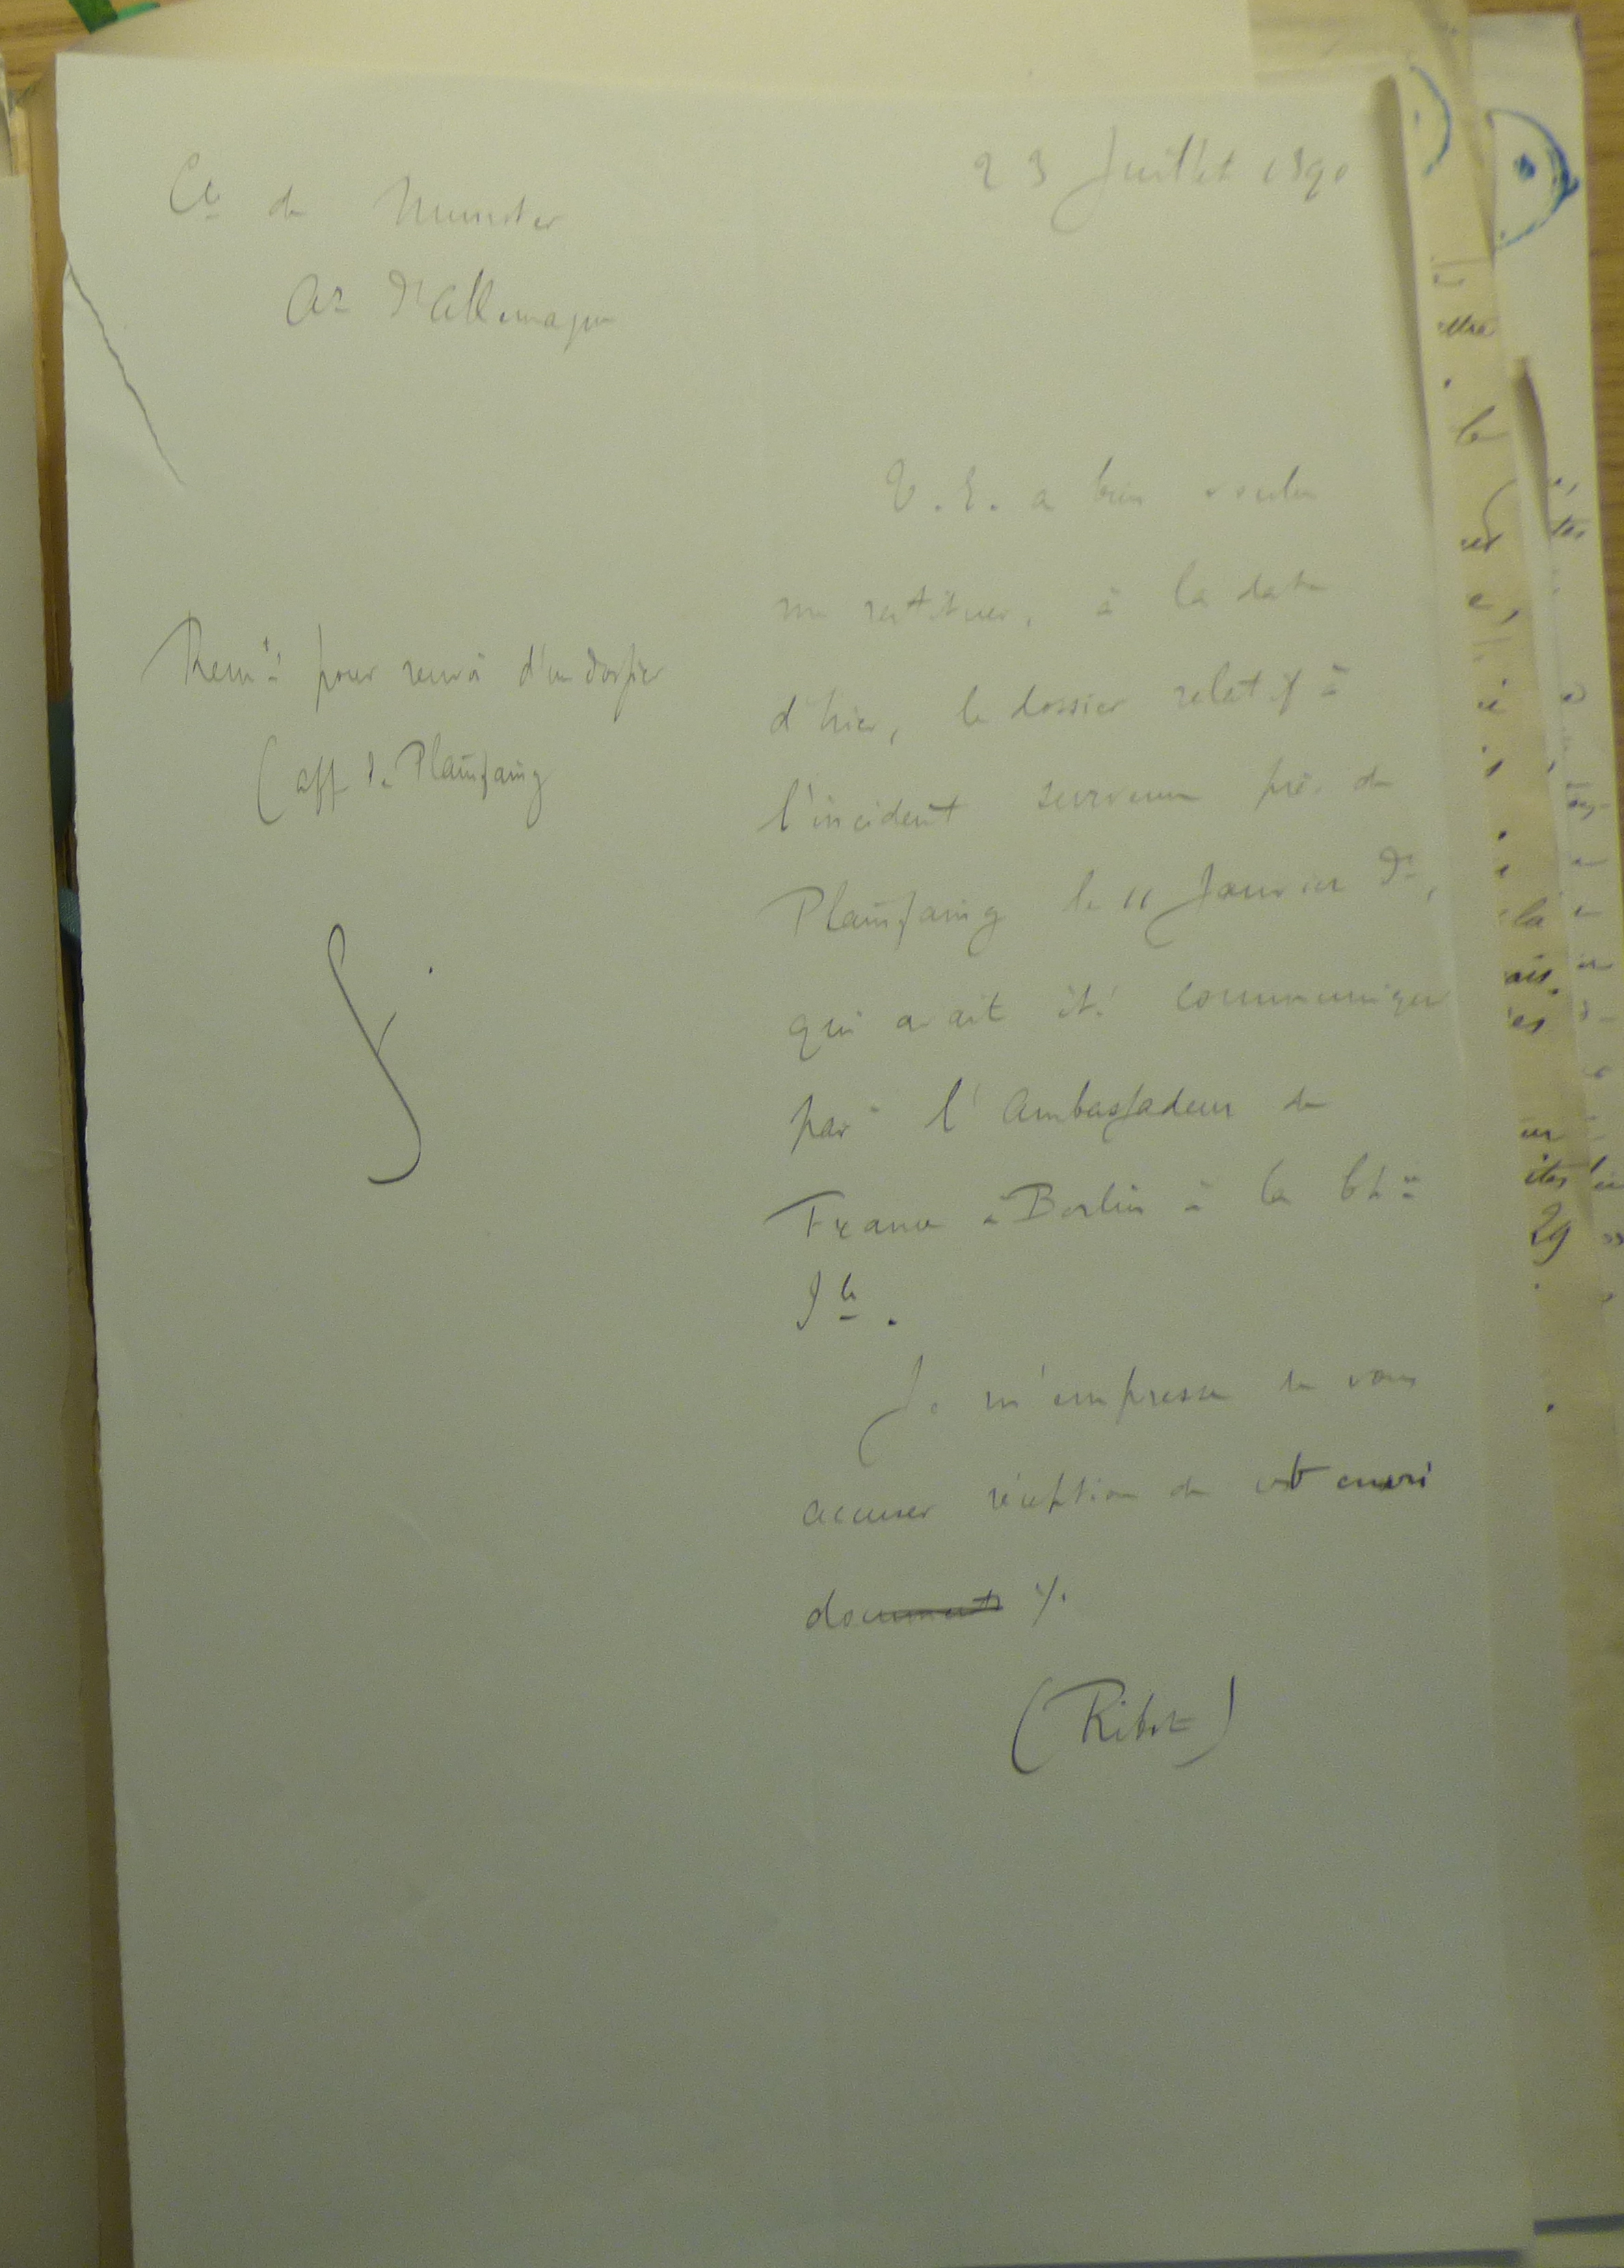 23 Juillet 1890
Cte de Munster
Ar d'Allemagne
Remt pour renvoi d'un dossier
(aff. de Plainfaing
V. E. a bien voulu
me restituer, à la date
d'hier, le dossier relatif à
l'incident survenu près de
Plainfaing le 11 Janvier dr,
qui avait été communiqué
par l'Ambassadeur de
France à Berlin à la Chie
Ile.
Je m'empresse de vous
accuser réception de cet envoi
documents ./.
(Ribot)